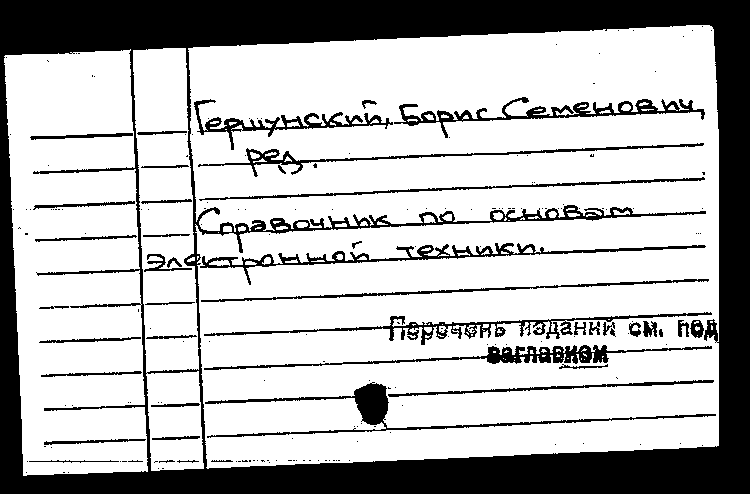 Гершунский, Борис Семенович,
ред.
Справочник по основам
электронной техники.
Перечень изданий см. под
заглавием